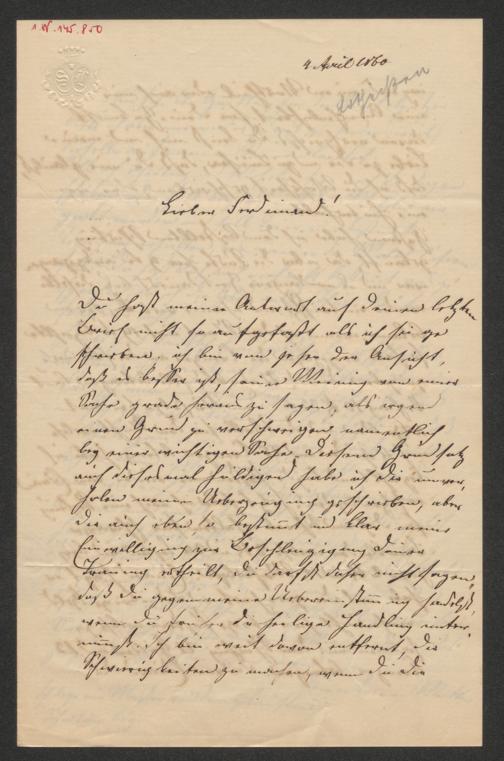 1.N. 145.850
4 April 1860
Lieber Ferdinand!
Du hast meine Antwort auf deinen letzten
Brief nicht so aufgefaßt als ich sie ge
schrieben, ich bin von jeher der Ansicht,
daß es besser ist, seine Meinung von einer
Sache grade heraus zu sagen, als irgend
einen Grund zu verschweigen namentlich
bei einer wichtigen Sache. Diesem Grundsatz
auch diesesmal huldigend habe ich dir unver,
holen meine Ueberzeugung geschrieben, aber
dir auch eben so bestimmt und klar meine
Einwilligung zur Beschleunigung deiner
Trauung ertheilt, du darfst daher nicht sagen,
daß du gegen meine Uebereinstimmung handelst
wenn du früher die heilige Handlung unter,
nimmst. Ich bin weit davon entfernt, dir
Schwierigkeiten zu machen, wenn du die